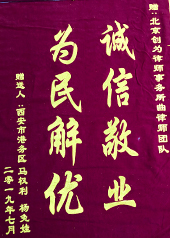 赠:北京创为律师事务所曲律师团队
诚信敬业
为民解优
赠送人:西安市港务区马权利 杨党娃
二零一九年七月